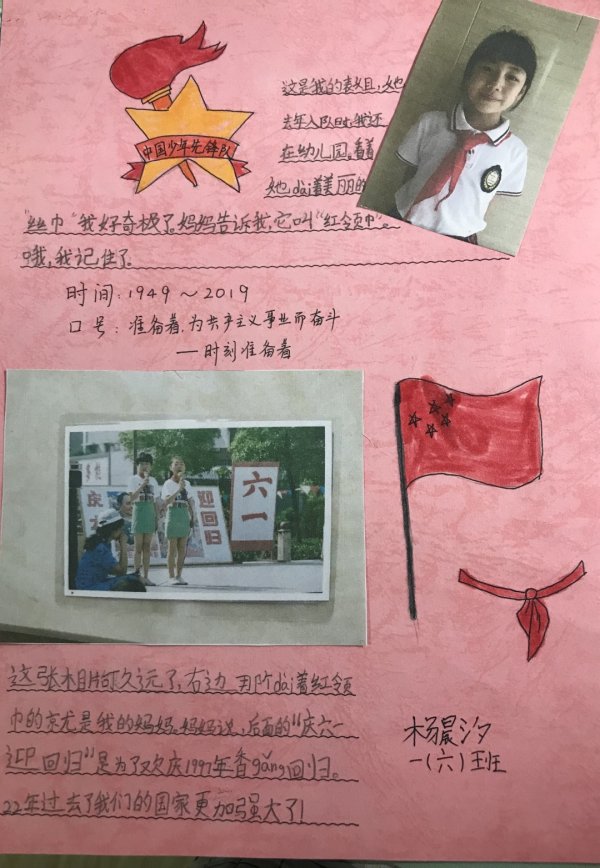 中国少年先锋队
这是我的表姐，她
去年入队时，我还
在幼儿园。看着
她dài着美丽的
"丝巾"我好奇极了。妈妈告诉我，它叫"红领巾"。
哦，我记住了。
时间：1949～2019
口号：准备着，为共产主义事业而奋斗
—时刻准备着
庆
迎回归
六一
这张相片可久远了，右边那个dài着红领
巾的就是我的妈妈。妈妈说，后面的"庆六一
迎回归"是为了欢庆1997年香gǎng回归。
22年过去了我们的国家更加强大了！
杨晨汐
一（六）班